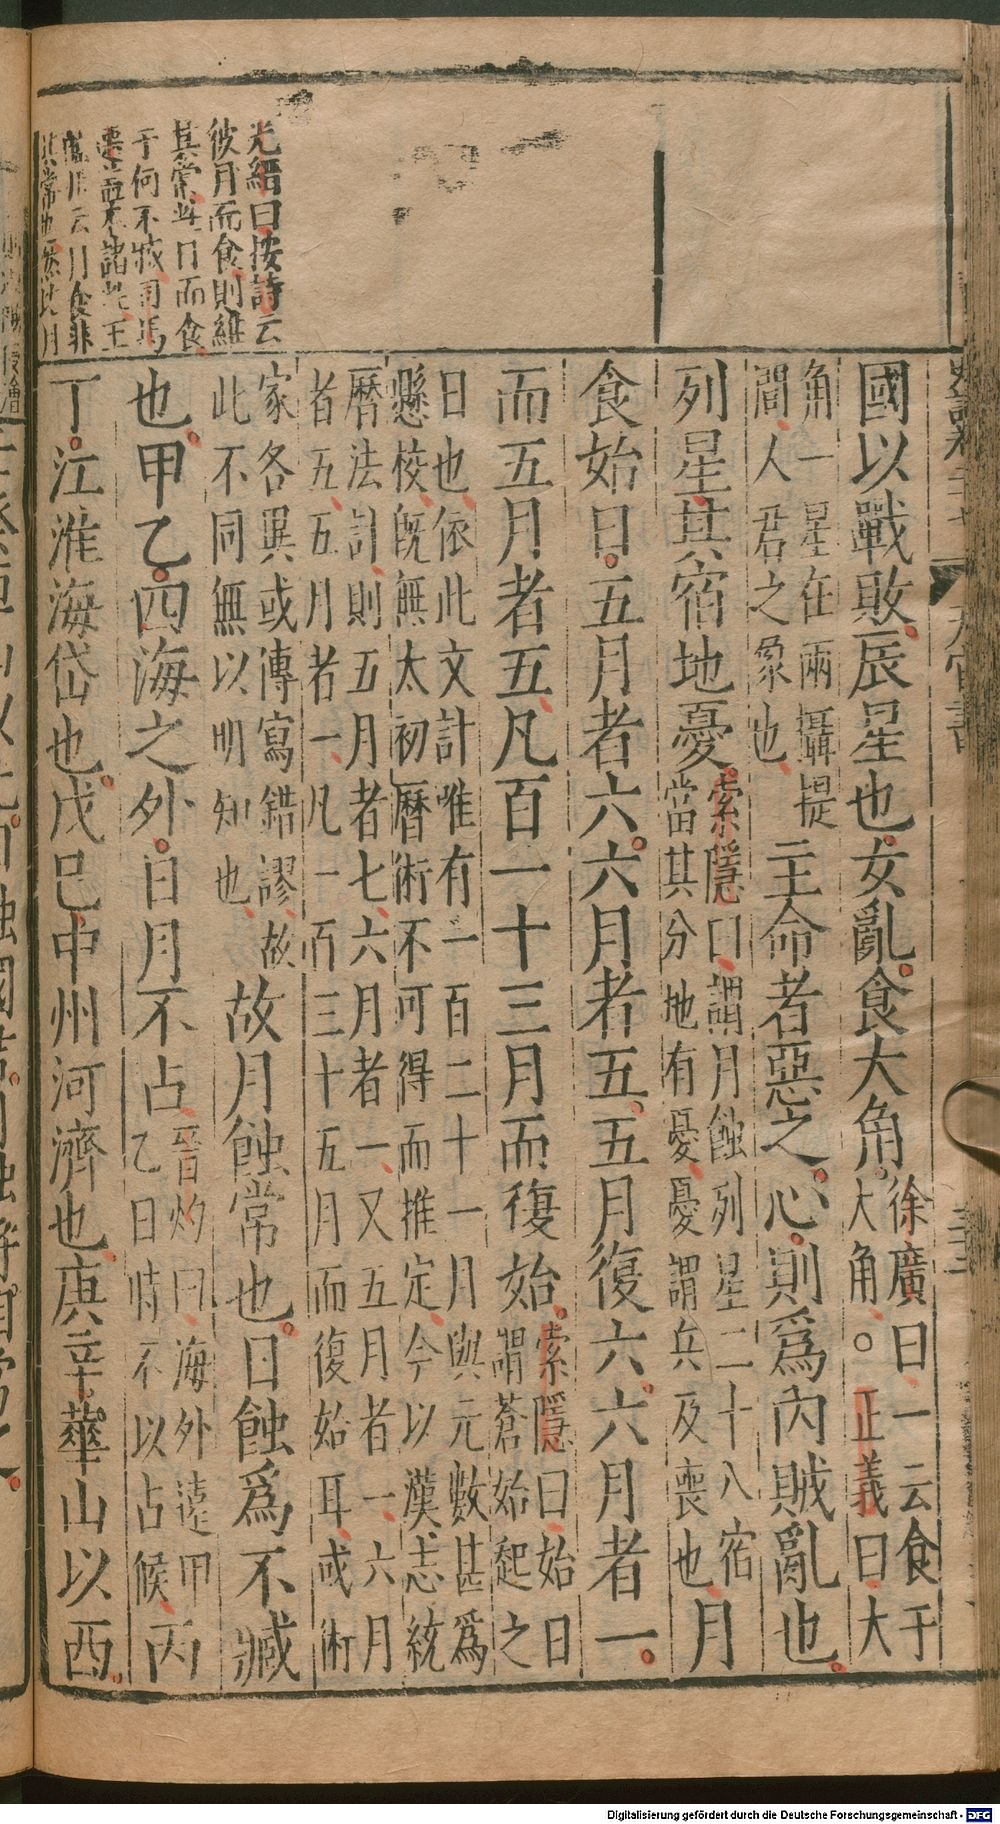 光縉曰按詩云
彼月而食則維
其常此日而食
于何不臧司馬
遷蓋本諸此王
應麟云月食非
其常也然此月
史記卷二十七 天官書 三十三
國以戰敗辰星也女亂食大角徐廣曰一云食于
大角○正義曰大
角一星在兩攝提
間人君之象也主命者惡之心則爲內賊亂也
列星其宿地憂索隱曰謂月蝕列星二十八宿
當其分地有憂憂謂兵及喪也月
食始日五月者六六月者五五月復六六月者一
而五月者五凡百一十三月而復始索隱曰始日
謂蒼始起之
日也依此文計唯有一百二十一月與元數甚爲
懸校既無太初曆術不可得而推定今以漢志統
曆法計則五月者七六月者一又五月者一六月
者五五月者一凡一百三十五月而復始耳或術
家各異或傳寫錯謬故
此不同無以明知也故月蝕常也日蝕爲不臧
也甲乙四海之外日月不占晉灼曰海外遠甲
乙日時不以占候丙
丁江淮海岱也戊巳中州河濟也庚辛華山以西
Digitalisierung gefördert durch die Deutsche Forschungsgemeinschaft - DFG